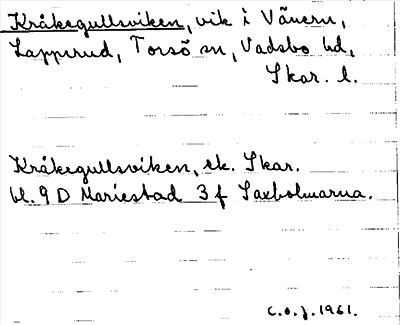 Kråkegullsviken, vik i Vänern,
Lapprud, Torsö sn, Vadsbo hd,
Skar. l.
Kråkegullsviken, ek. Skar.
bl. 9 D Mariestad 3 f Saxholmarna.
C.O.J. 1961.